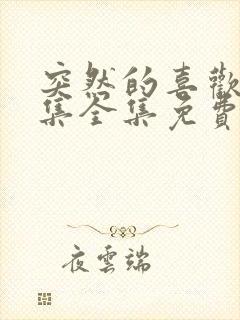 突然的喜歡
集全集免費
夜雲端